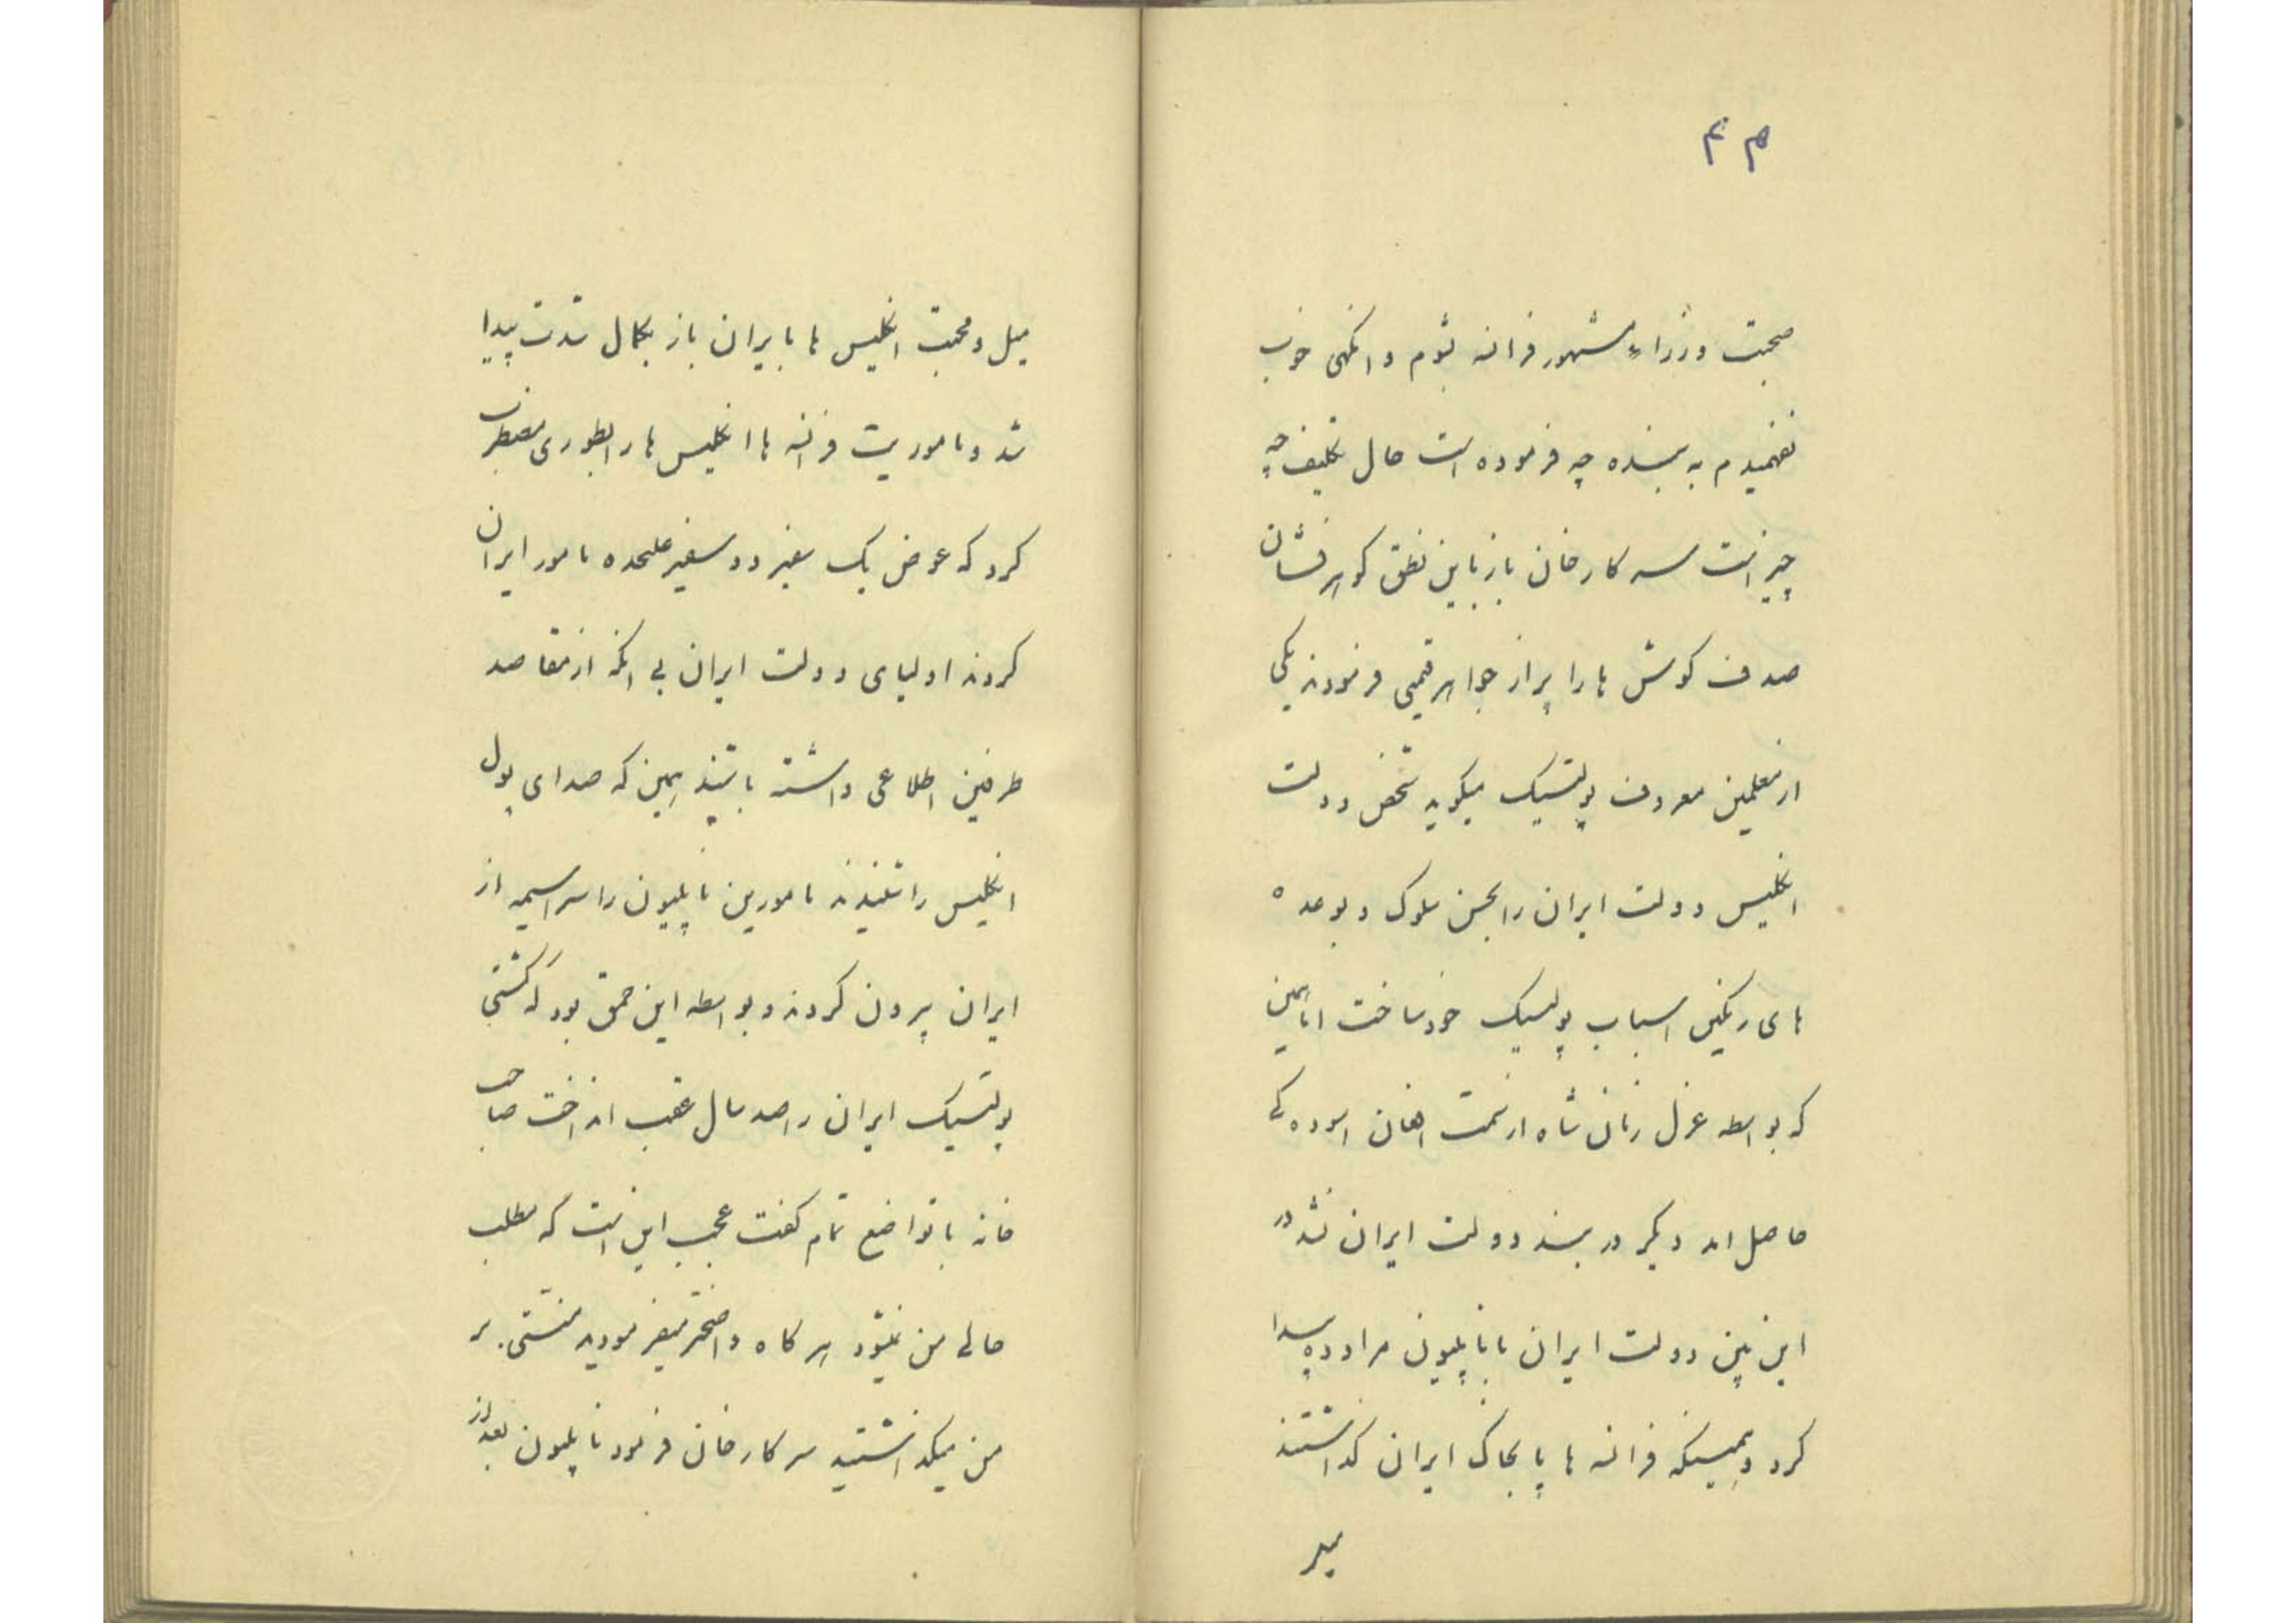 ۴۵
صحبت وزراء مشهور فرانسه بشوم و انگهی خوب
نفهمیدم به بنده چه فرموده است حال تکلیف چه
چیز است سرکار خان باز باین نطق کوهر فشان
صدف کوش ها را پر از جواهر قیمتی فرمودند یکی
از معلمین معروف پولتیک میکوید شخص دولت
انکلیس دولت ایران را بحسن سلوک و بوعده
های رنکین اسباب پولتیک خود ساخت اما همین
که بواسطه عزل زمان شاه از سمت افغان اسوده کی
حاصل امد دیکر در بند دولت ایران نشد در
این بین دولت ایران با ناپلیون مراوده پیدا
کرد و همینکه فرانسه ها پا بخاک ایران کذاشتند
میل
میل و محبت انکلیس ها با ایران باز بکمال شدت پیدا
شد و ماموریت فرانسه ها انکلیس ها را بطوری مضطرب
کرد که عوض یک سفیر دو سفیر علیحده مامور ایران
کردند اولیای دولت ایران بی انکه از مقاصد
طرفین اطلاعی داشته باشند همین که صدای پول
انکلیس را شنیدند مامورین ناپلیون را سراسیمه از
ایران بیرون کردند و بواسطه این حمق بود که کشتی
پولتیک ایران را صد سال عقب انداخت صاحب
خانه با تواضع تمام کفت عجب این است که مطلب
حالی من نمیشود هرکاه واضحتر میفرمودید منتی بر
من میکذاشتید سرکار خان فرمود ناپلیون بعد از